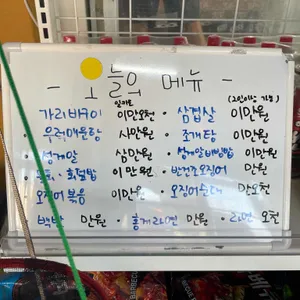 - 오늘의 메뉴 -
일키로 (2인이상 가능)
가리비구이 이만오천 · 삼겹살 이만원
· 우럭매운탕 사만원 · 조개탕 이만원
· 성게알 삼만원 · 성게알비빔밥 이만원
회덮밥 이만원 · 반건조오징어 만원
오징어볶음 이만원 · 오징어순대 만오천
백반 만원 · 홍게라면 만원 · 라면 오천